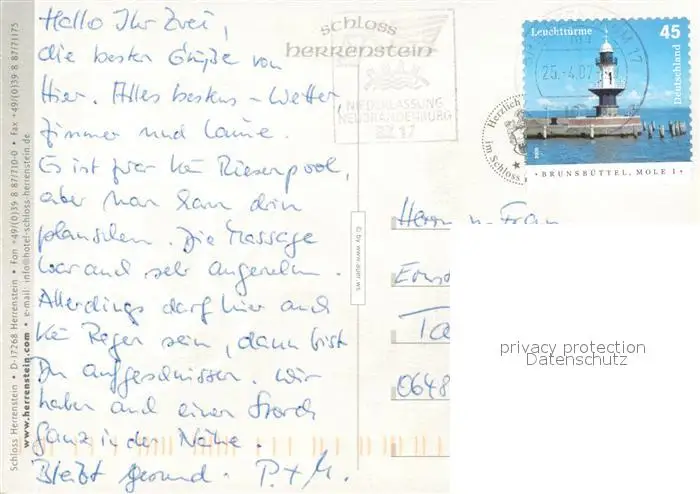 Hallo Ihr Zwei,
die besten Grüße von
hier. Alles bestens - Wetter,
Zimmer und Laune.
Es ist zwar kein Riesenpool,
aber man kann drin
planschen. Die Massage
war auch sehr angenehm.
Allerdings darf hier auch
kein Regen sein, dann bist
Du aufgeschmissen. Wir
haben auch einen Storch
ganz in der Nähe.
Bleibt gesund. P. + M.
Schloss Herrenstein • D-17268 Herrenstein • Fon +49/(0)39 8 87/710-0 • Fax +49/(0)39 8 87/71175
www.herrenstein.com • e-mail: info@hotel-schloss-herrenstein.de
schloss
herrenstein
NIEDERLASSUNG
NEUBRANDENBURG
BZ 17
25.-4.07
Herzlich
im Schloss
Leuchttürme 45
Deutschland
• BRUNSBÜTTEL, MOLE 1 •
© by www.auer.ws
Herrn u. Frau
0648
privacy protection
Datenschutz